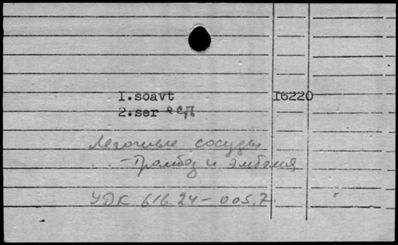 1.soavt 16220
2.ser & СД
Легочные сосуды
- Тромбоз и эмболия
УДК 616.24-005.7